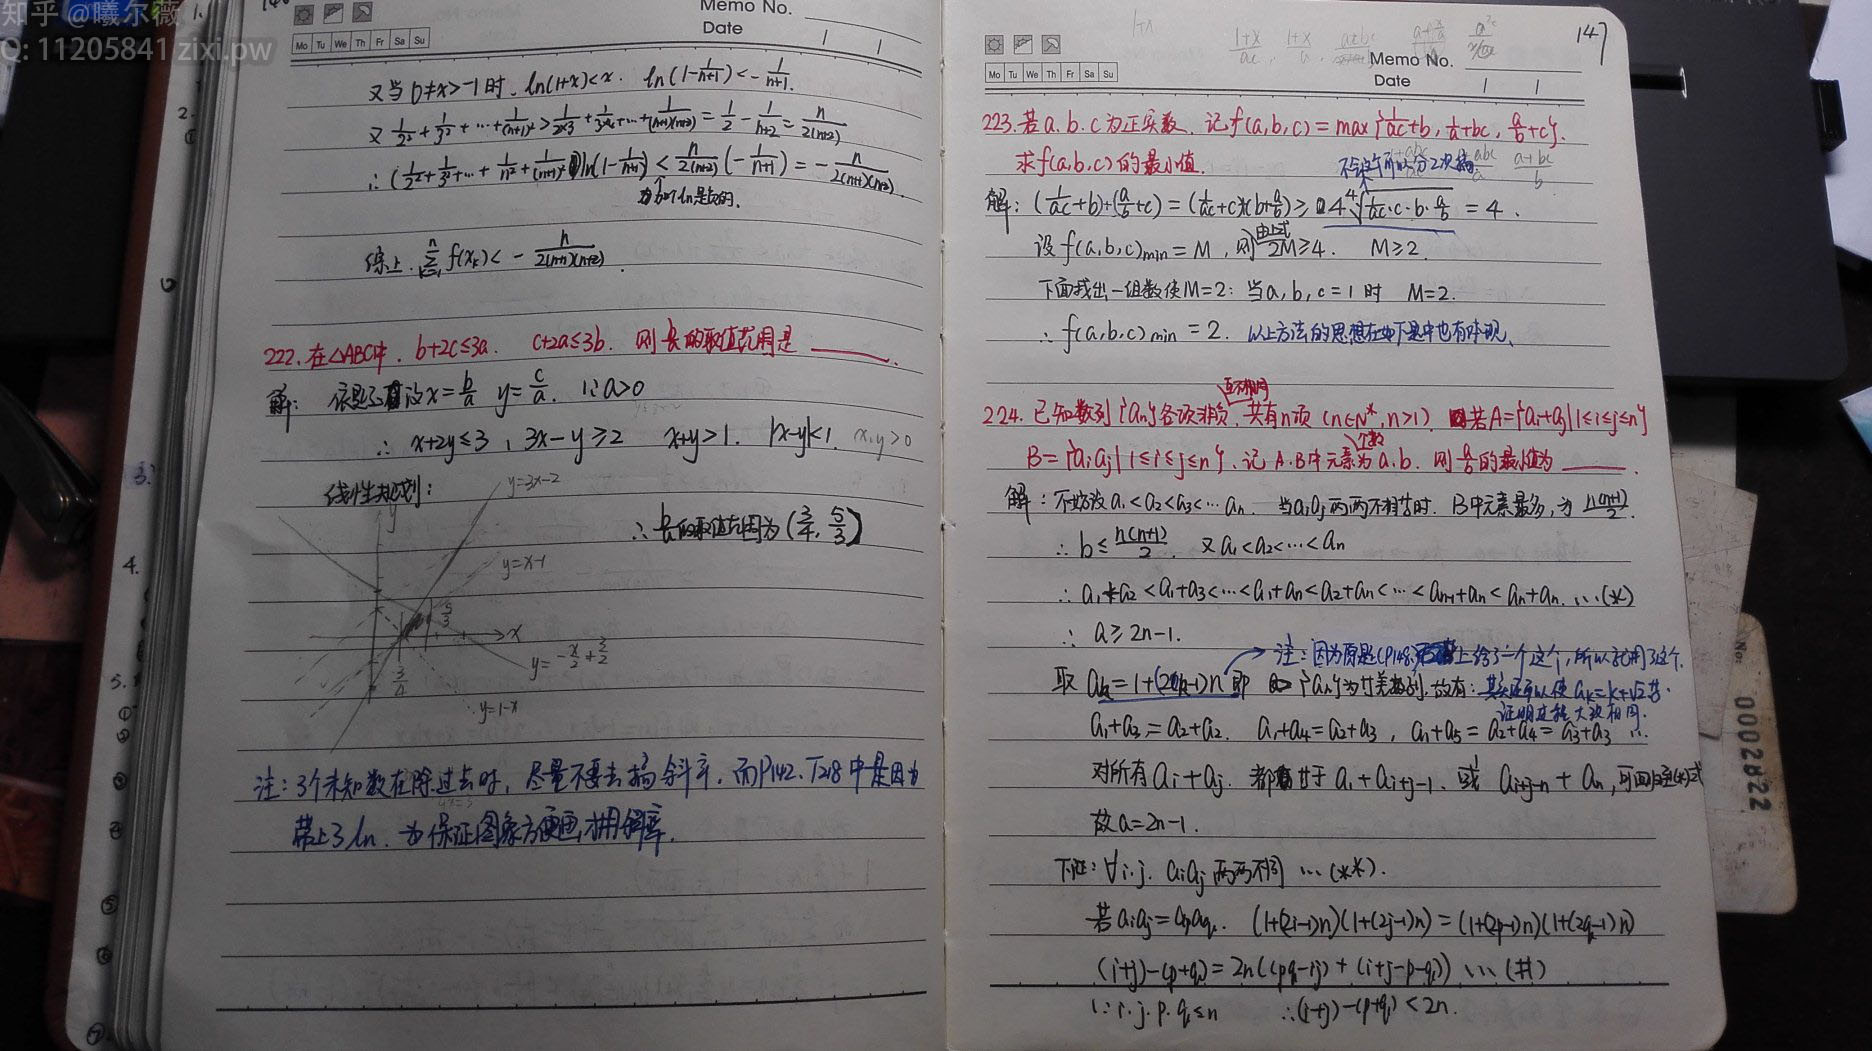 知乎 @曦尔薇
Q: 11205841 zixi.pw
Memo No.
Date
Mo Tu We Th Fr Sa Su
又当 0≠x>-1 时. ln(1+x)<x. ln(1-1/(n+1))<-1/(n+1).
又 1/2²+1/3²+…+1/(n+1)²>1/(2×3)+1/(3×4)+…+1/((n+1)(n+2))=1/2-1/(n+2)=n/(2(n+2))
∴(1/2²+1/3²+…+1/n²+1/(n+1)²)ln(1-1/(n+1))<n/(2(n+2))(-1/(n+1))=-n/(2(n+1)(n+2))
综上. Σf(xₖ)<-n/(2(n+1)(n+2)).
222. 在△ABC中. b+2c≤3a. c+2a≤3b. 则 b/a 的取值范围是 ______.
解: 依题 设x=b/a y=c/a. ∵a>0
∴ x+2y≤3, 3x-y≥2 x+y>1. |x-y|<1. x,y>0
线性规划:
y=3x-2
y
∴ b/a的取值范围为(3/4, 5/3)
y=x-1
5/3
x
y=-x/2+3/2
3/4
y=1-x
注: 3个未知数在除过去时, 尽量不要去搞斜率. 而P142. T218中是因为
带上了ln. 为保证图象方便画,才用斜率.
147
Memo No.
Date
Mo Tu We Th Fr Sa Su
223. 若a.b.c为正实数. 记f(a,b,c)=max{1/ac+b, 1/a+bc, a/b+c}.
求f(a,b,c)的最小值.
解: (1/ac+b)+(a/b+c)=(1/ac+c)+(b+a/b)≥4⁴√(1/ac·c·b·a/b)=4.
设f(a,b,c)min=M, 则由上式2M≥4. M≥2.
下面找出一组数使M=2: 当a,b,c=1时 M=2.
∴ f(a,b,c)min=2. 以上方法的思想在如下题中也有体现.
224. 已知数列{an}各项非负 互不相同, 共有n项 (n∈N*, n>1). 若A={ai+aj|1≤i≤j≤n}
B={aiaj|1≤i≤j≤n}. 记A.B中元素个数为a.b. 则a/b的最小值为 ______.
解: 不妨设a₁<a₂<a₃<…an. 当aiaj两两不相等时. B中元素最多, 为n(n+1)/2.
∴ b≤n(n+1)/2. 又a₁<a₂<…<an
∴ a₁+a₂<a₁+a₃<…<a₁+an<a₂+an<…<an-1+an<an+an. …(*)
∴ a≥2n-1.
注: 因为原题(P148.)上给了一个这个, 所以就用了这个.
取 ak=1+(2k-1)n 即 {an}为等差数列. 故有: 其实还可以使ak=k+√2等.
证明过程大致相同.
a₁+a₃=a₂+a₂. a₁+a₄=a₂+a₃, a₁+a₅=a₂+a₄=a₃+a₃ …
对所有ai+aj. 都等于a₁+ai+j-1. 或 ai+j-n+an, 可回归至(*)式
故a=2n-1.
下证: ∀i.j. aiaj两两不同 …(**).
若aiaj=apaq. (1+(2i-1)n)(1+(2j-1)n)=(1+(2p-1)n)(1+(2q-1)n)
(i+j)-(p+q)=2n((pq-ij)+(i+j-p-q)) …(#)
∵i.j.p.q≤n ∴(i+j)-(p+q)<2n.
No: 0002822